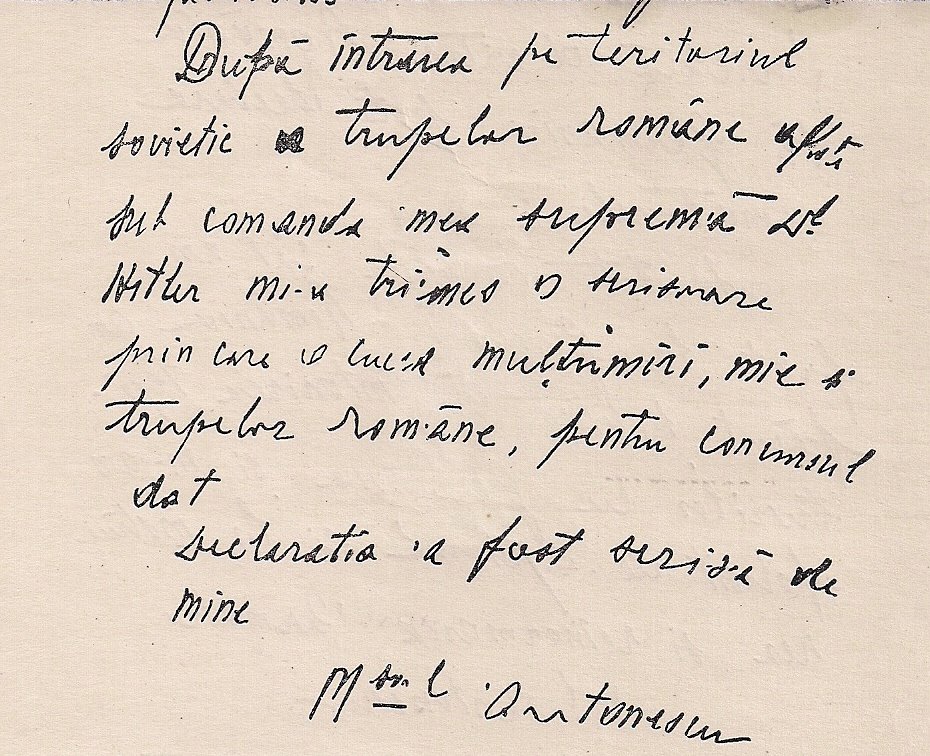 După intrarea pe teritoriul
sovietic a trupelor române aflate
sub comanda mea supremă Dl
Hitler mi-a trimes o scrisoare
prin care aducea mulțumiri, mie și
trupelor române, pentru concursul
dat
Declaratia a fost scrisă de
mine
Antonescu